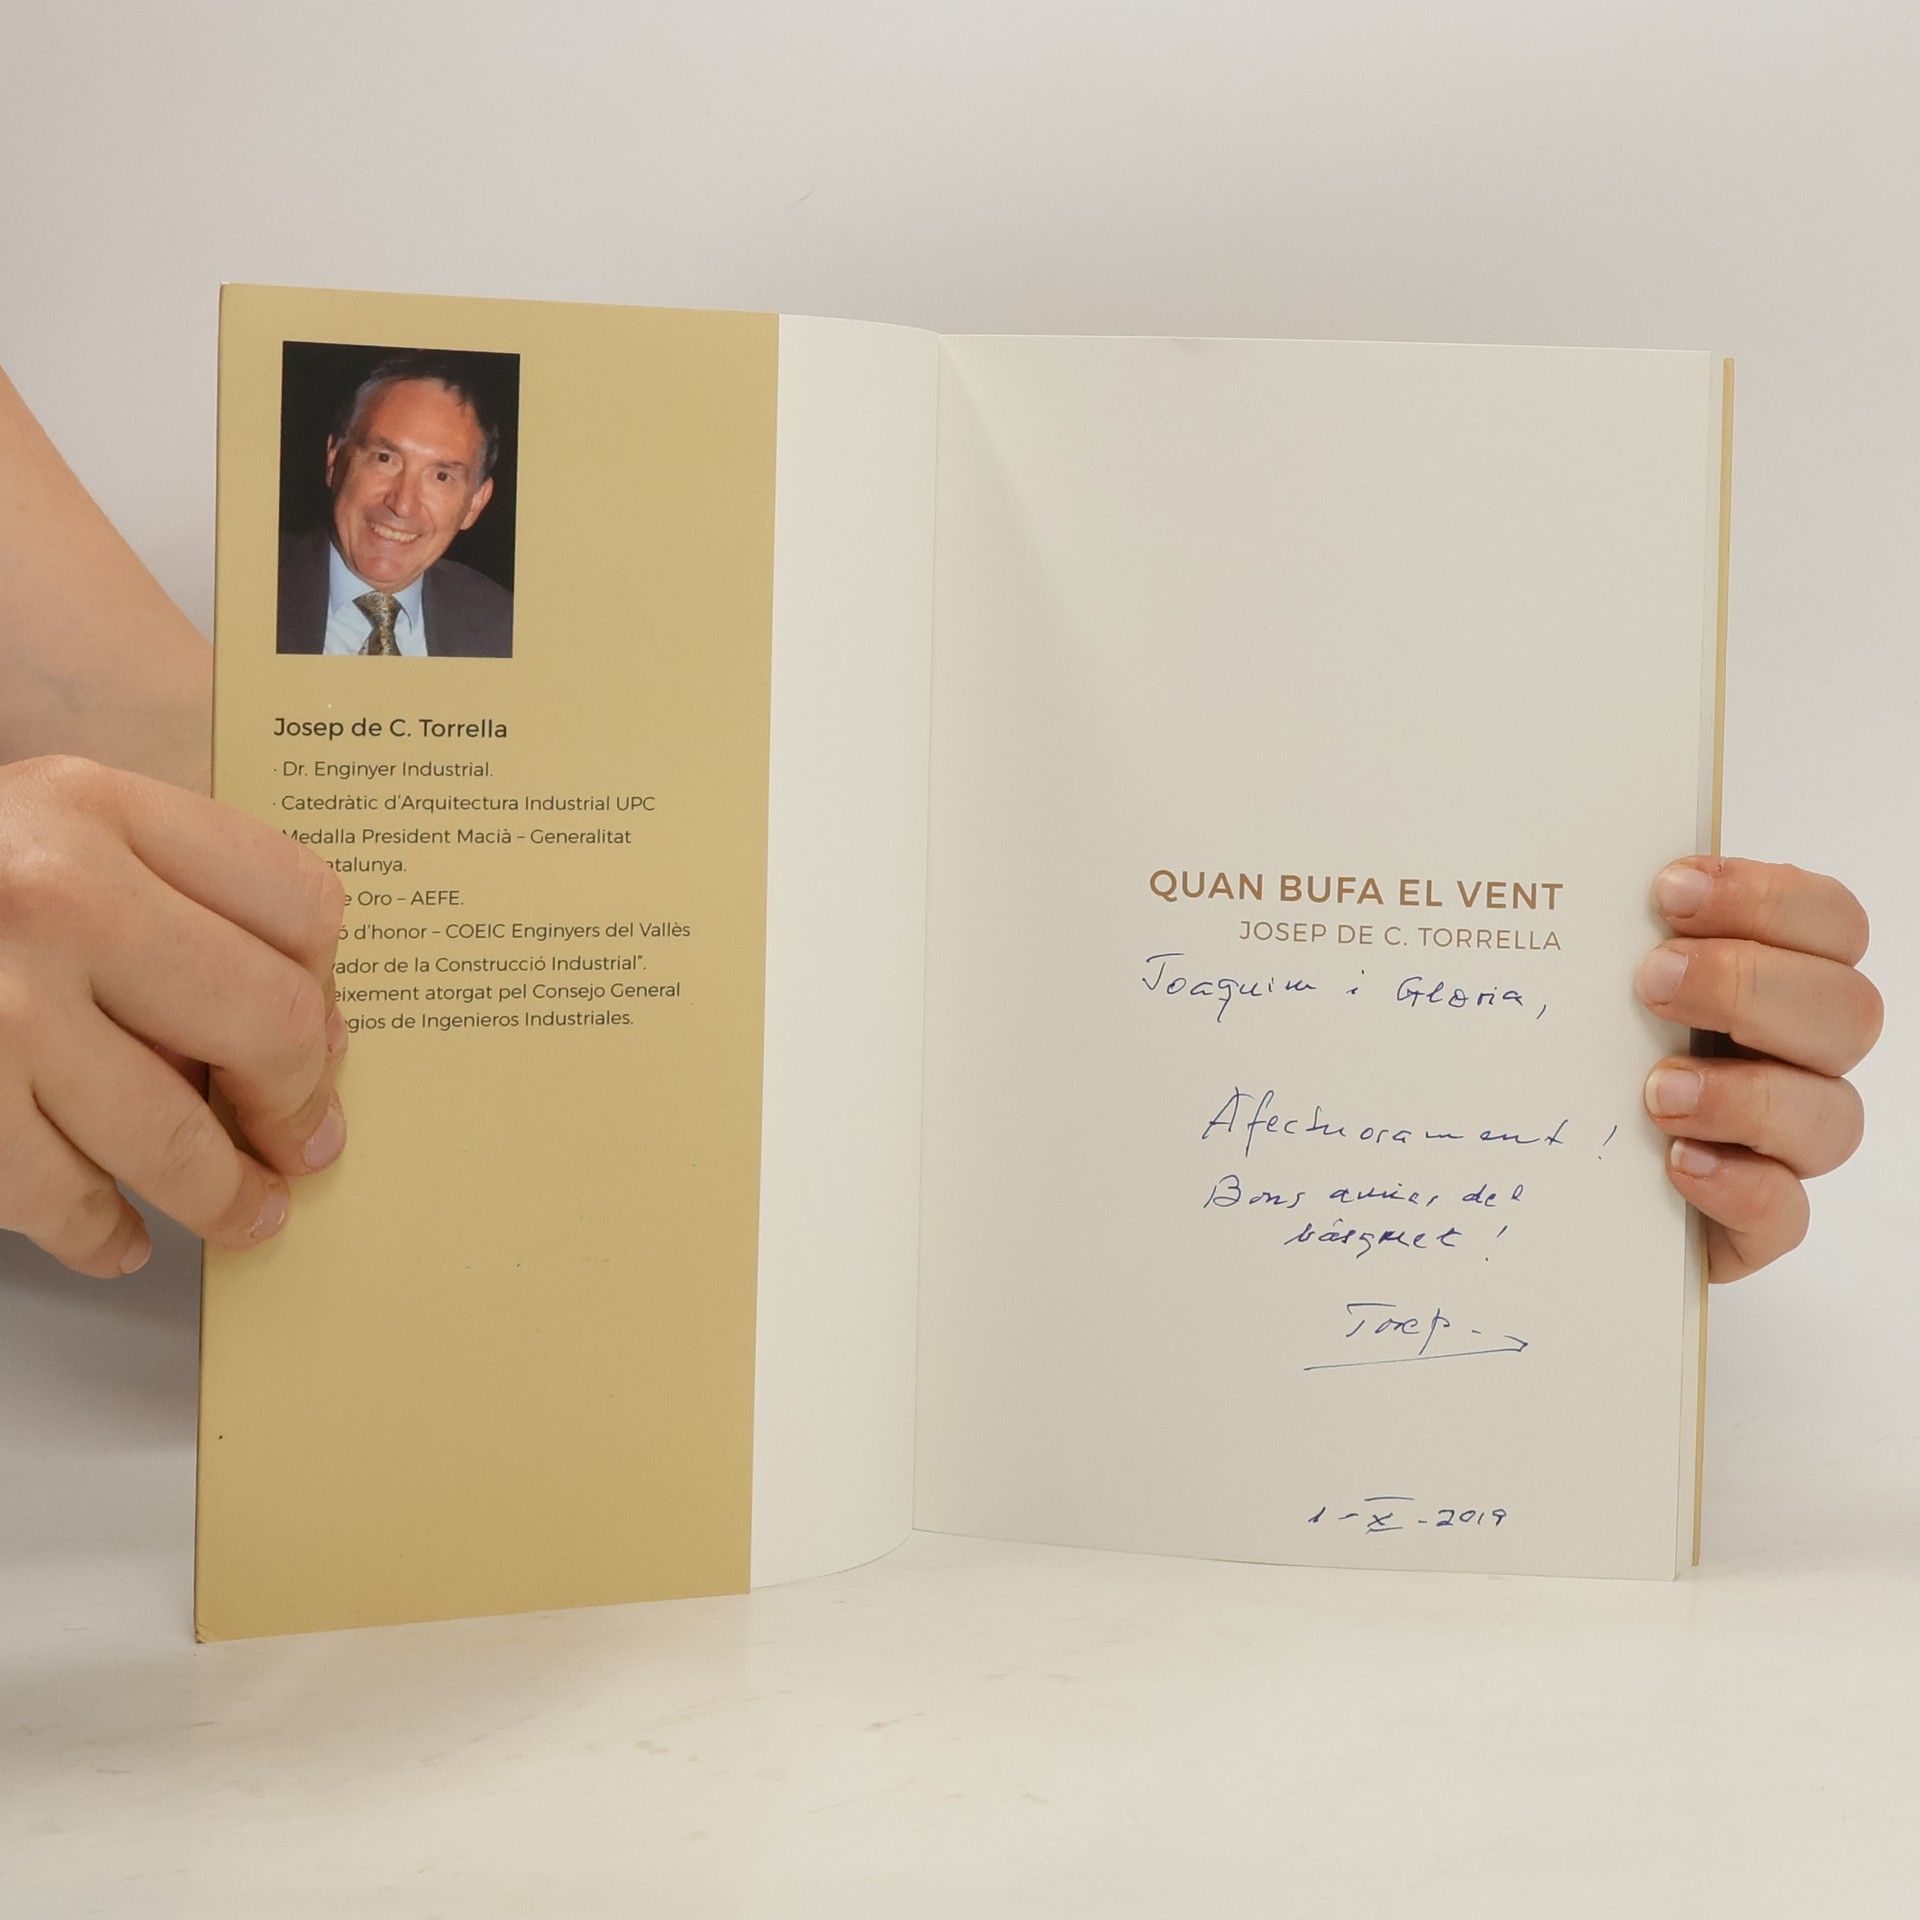 Josep de C. Torrella
· Dr. Enginyer Industrial.
· Catedràtic d'Arquitectura Industrial UPC
Medalla President Macià – Generalitat
atalunya.
e Oro – AEFE.
ó d'honor – COEIC Enginyers del Vallès
vador de la Construcció Industrial".
eixement atorgat pel Consejo General
gios de Ingenieros Industriales.
QUAN BUFA EL VENT
JOSEP DE C. TORRELLA
Joaquim i Gloria,
Afectuosament!
Bons amics del
bàsquet!
Josep
1-X-2019